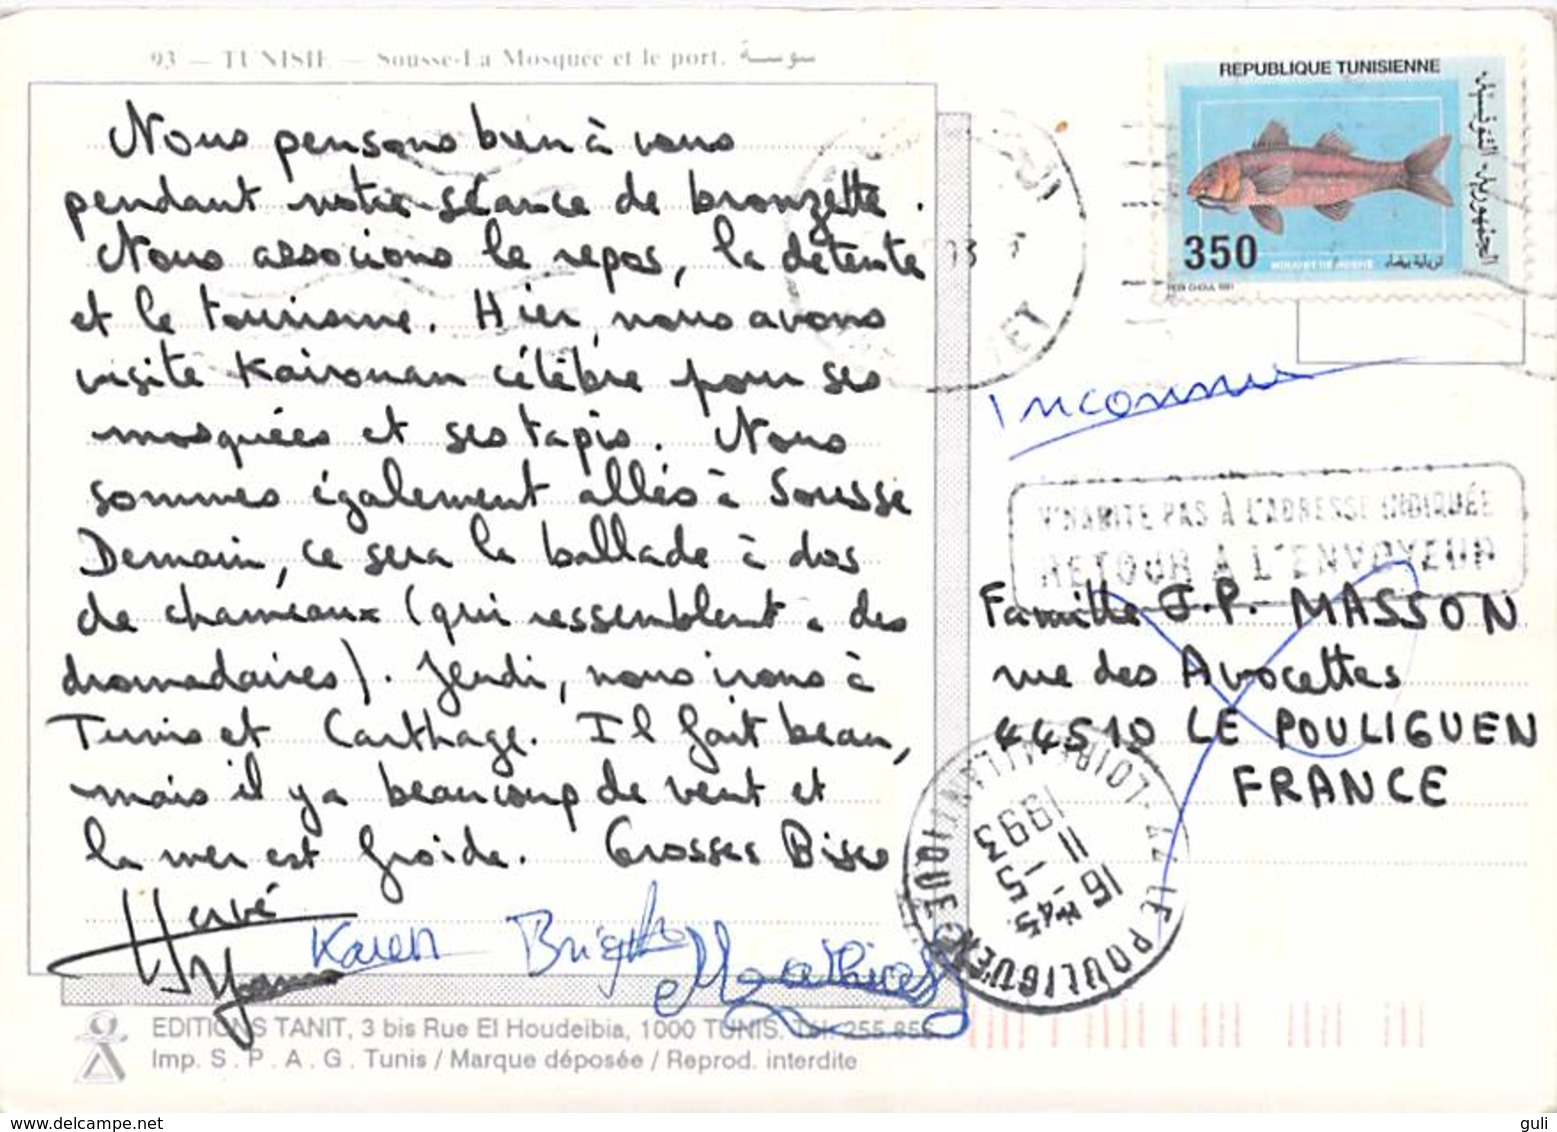 93 — TUNISIE — Sousse-La Mosquée et le port. سوسة
Nous pensons bien à vous
pendant notre séance de bronzette.
Nous associons le repos, la détente
et le tourisme. Hier, nous avons
visité Kairouan célèbre pour ses
mosquées et ses tapis. Nous
sommes également allés à Sousse
Demain, ce sera la ballade à dos
de chameaux (qui ressemblent à des
dromadaires). Jeudi, nous irons à
Tunis et Carthage. Il fait beau,
mais il y a beaucoup de vent et
la mer est froide. Grosses Bises
Hervé
Yoann
Karen Brigitte Mathias
EDITIONS TANIT, 3 bis Rue El Houdeibia, 1000 TUNIS. Tél. 255.855.
Imp. S.P.A.G. Tunis / Marque déposée / Reprod. interdite
REPUBLIQUE TUNISIENNE
الجمهورية التونسية
350
Inconnu
N'HABITE PAS À L'ADRESSE INDIQUÉE
RETOUR A L'ENVOYEUR
Famille J.P. MASSON
rue des Avocettes
44510 LE POULIGUEN
FRANCE
44 LE POULIGUEN
LOIRE ATLANTIQUE
16 H45
11 - 5
1993
guli